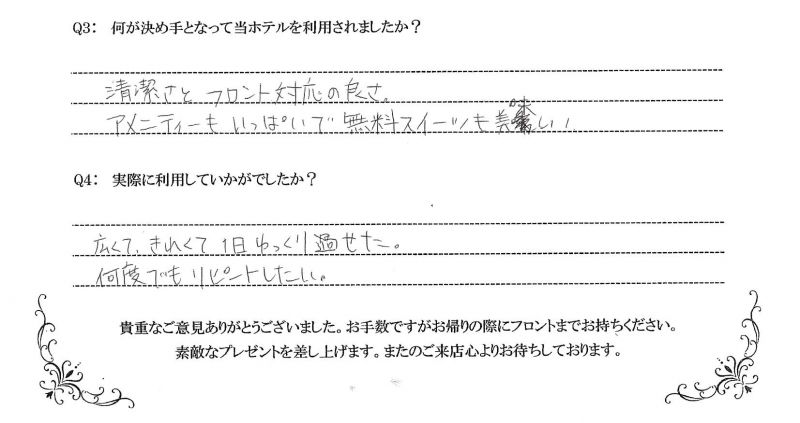 Q3: 何が決め手となって当ホテルを利用されましたか?
清潔さと フロント対応の良さ。
アメニティーもいっぱいで 無料スイーツも美味しい
Q4: 実際に利用していかがでしたか?
広くて、きれくて 1日ゆっくり過せた。
何度でもリピートしたい。
貴重なご意見ありがとうございました。お手数ですがお帰りの際にフロントまでお持ちください。
素敵なプレゼントを差し上げます。またのご来店心よりお待ちしております。